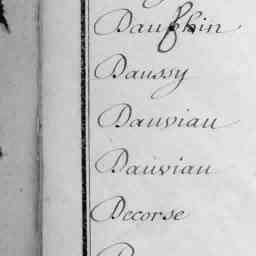 Dauphin
Daussy
Dauviau
Dauviau
Decorse